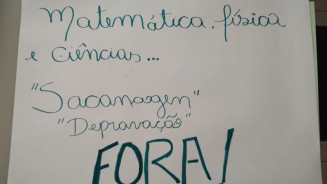 Matemática, física
e Ciências...
"Sacanagem"
"Depravação"
FORA!